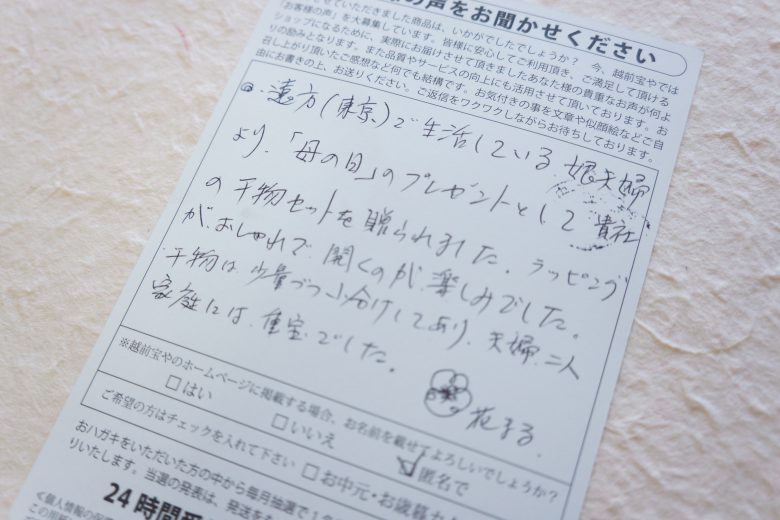 の声をお聞かせください
せていただきました商品は、いかがでしたでしょうか？ 今、越前宝やでは
「お客様の声」を大募集しています。皆様に安心してご利用頂き、ご満足して頂ける
ショップになるために、実際にお届けさせて頂きましたあなた様の貴重なお声が何よ
りの励みとなります。また品質やサービスの向上にも活用させて頂いております。お
召し上がり頂いたご感想など何でも結構です。お気付きの事を文章や似顔絵などご自
由にお書きの上、お送りください。ご返信をワクワクしながらお待ちしております。
遠方(東京)で生活している娘夫婦
より、「母の日」のプレゼントとして貴社
の干物セットを贈られました。ラッピング
が、おしゃれで、開くのが、楽しみでした。
干物は、少量づつ小分けしてあり、夫婦、二人
家庭には、重宝でした。
花まる。
※越前宝やのホームページに掲載する場合、お名前を載せてよろしいでしょうか？
□はい □いいえ ☑匿名で
ご希望の方はチェックを入れて下さい □お中元・お歳暮カ
おハガキをいただいた方の中から毎月抽選で1
りいたします。当選の発表は、発送を
24時間受
＜個人情報の
この用